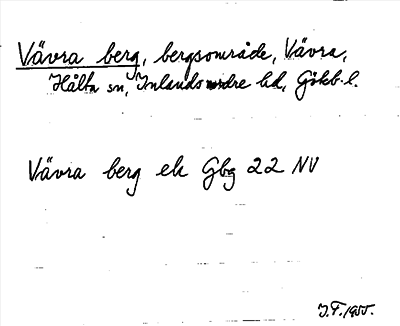 Vävra berg, bergsområde, Vävra,
Hålta sn, Inlands nordre hd, Göteb. l.
Vävra berg ek Gbg 22 NV
J.F. 1955.